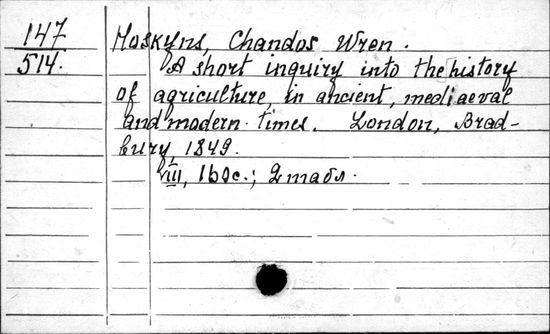 147 Hoskyns, Chandos Wren.
514. A short inquiry into the history
of agriculture, in ancient, mediaeval
and modern times. London, Brad-
bury, 1849.
VIII, 160c.;